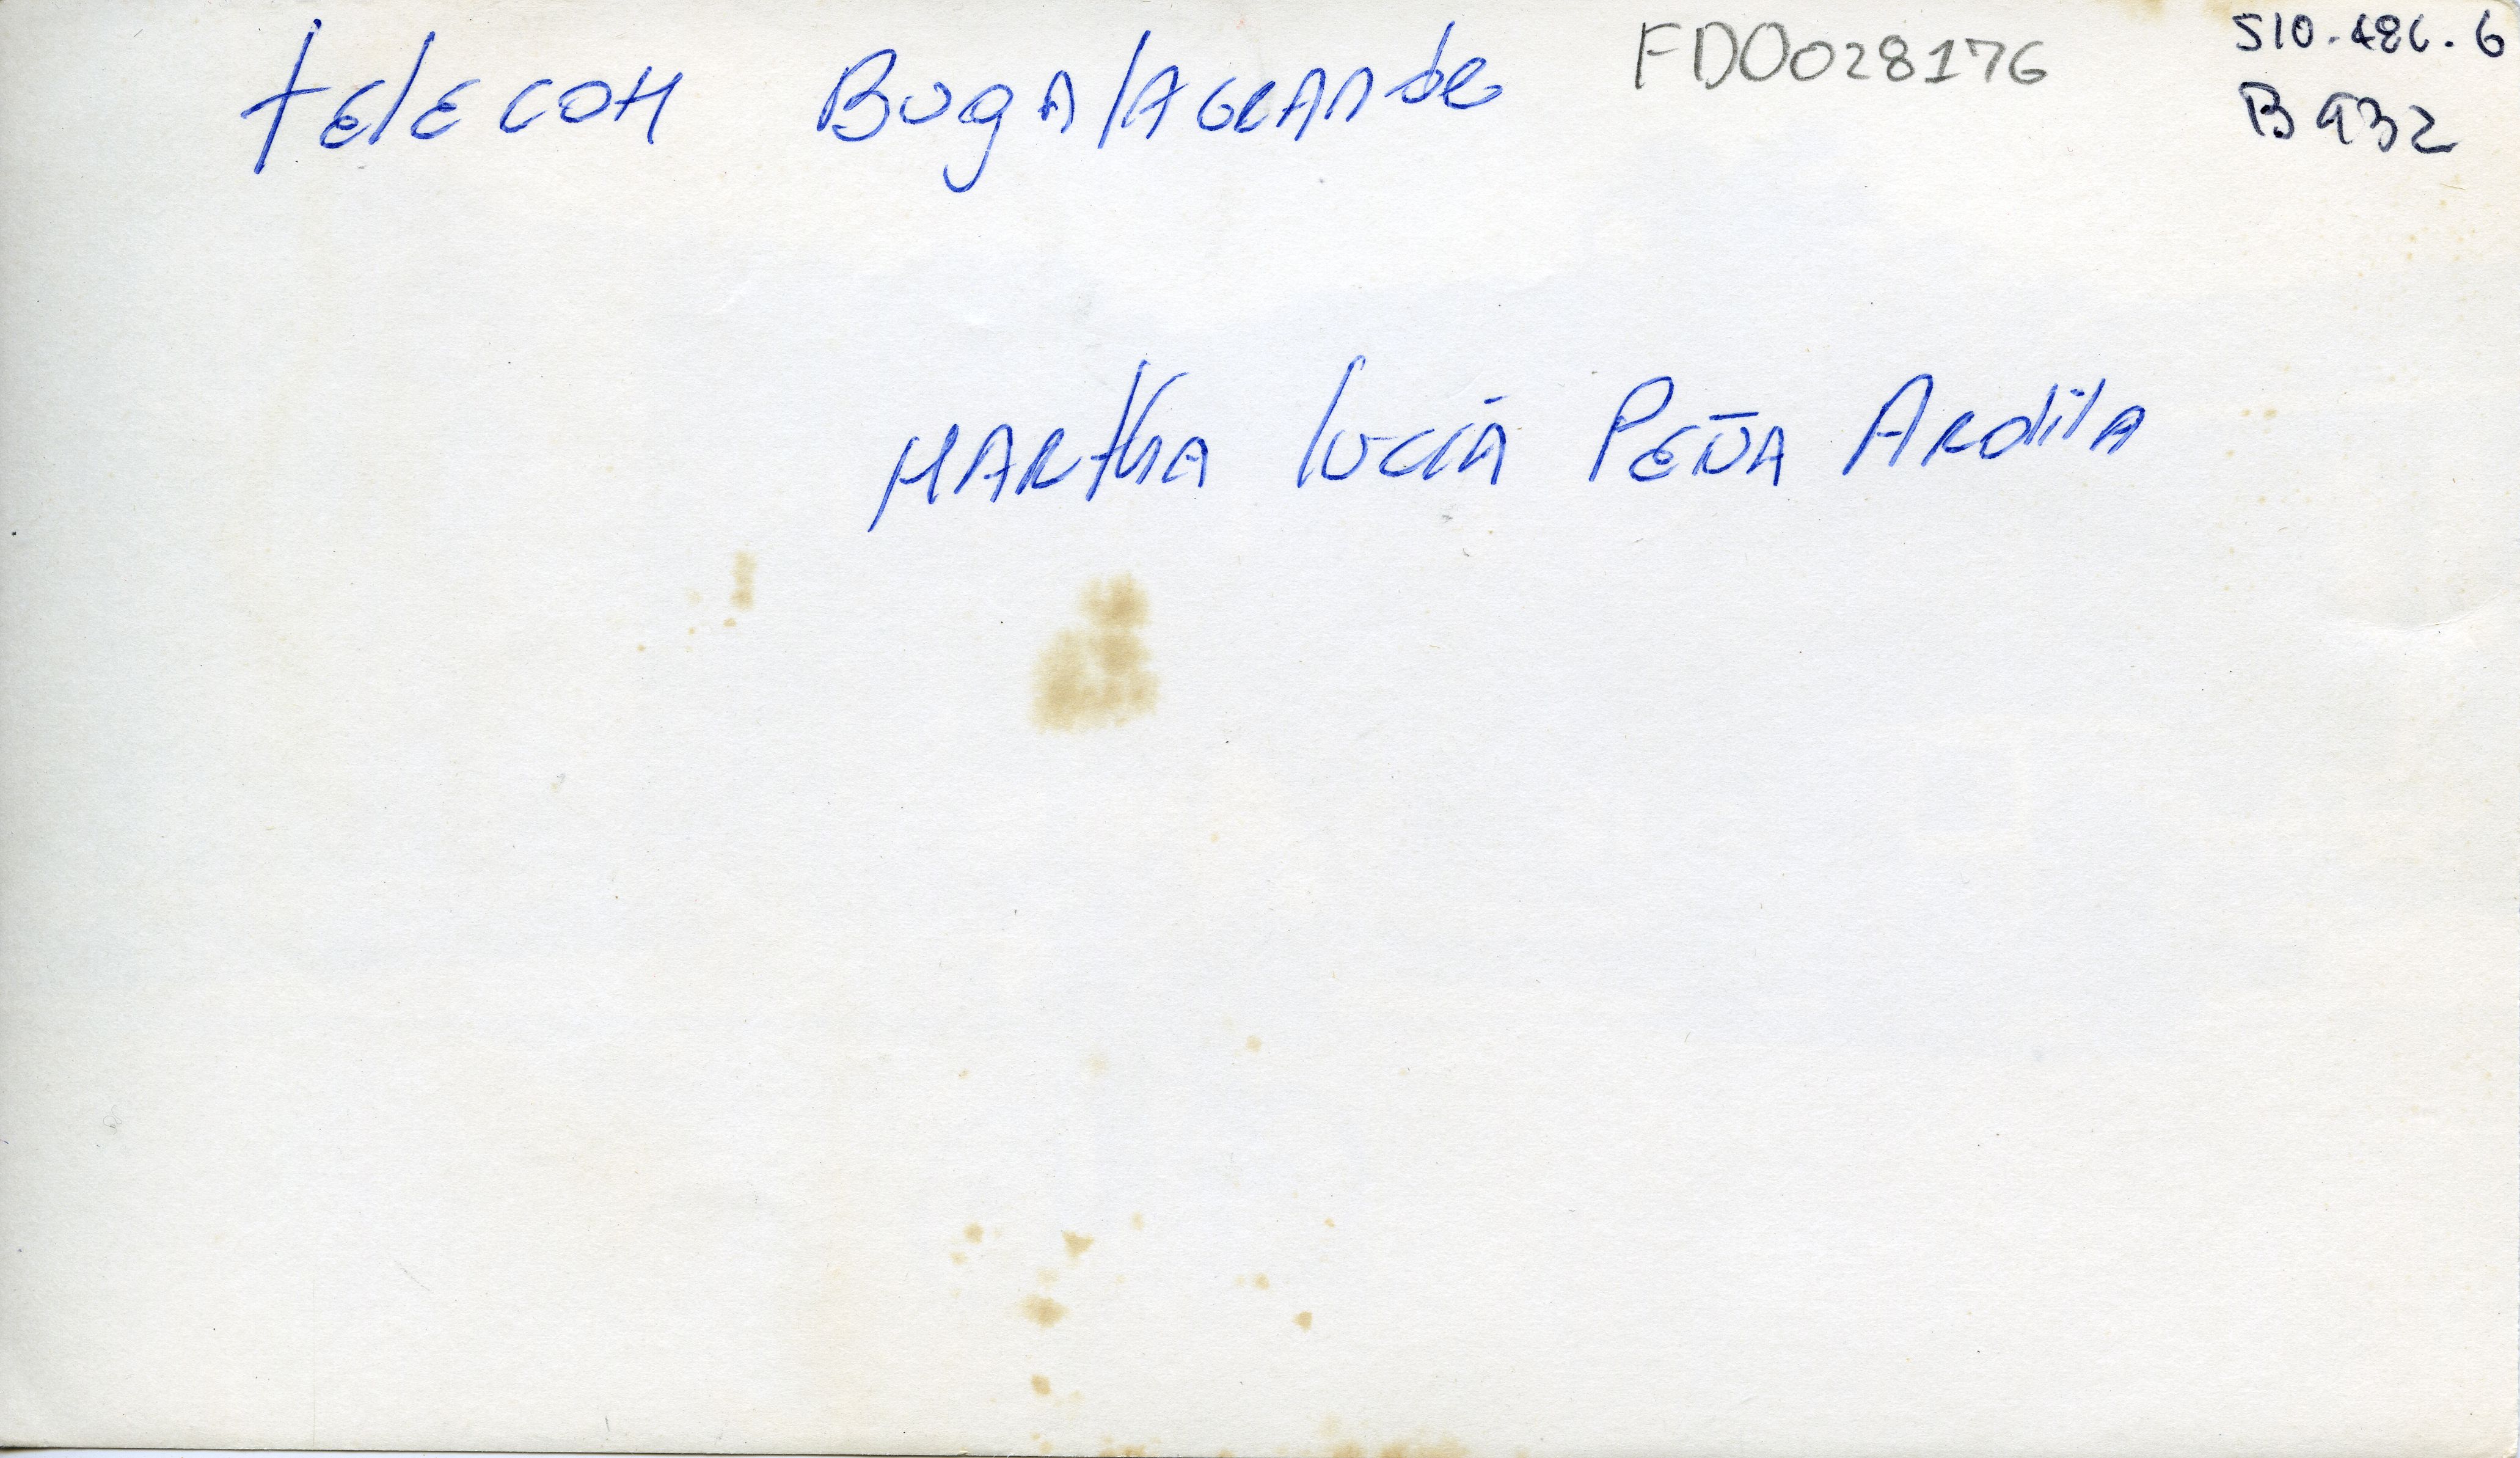 telecom Bugalagrande FDO028176 S10.486.6
B932
Martha lucía Peña Ardila